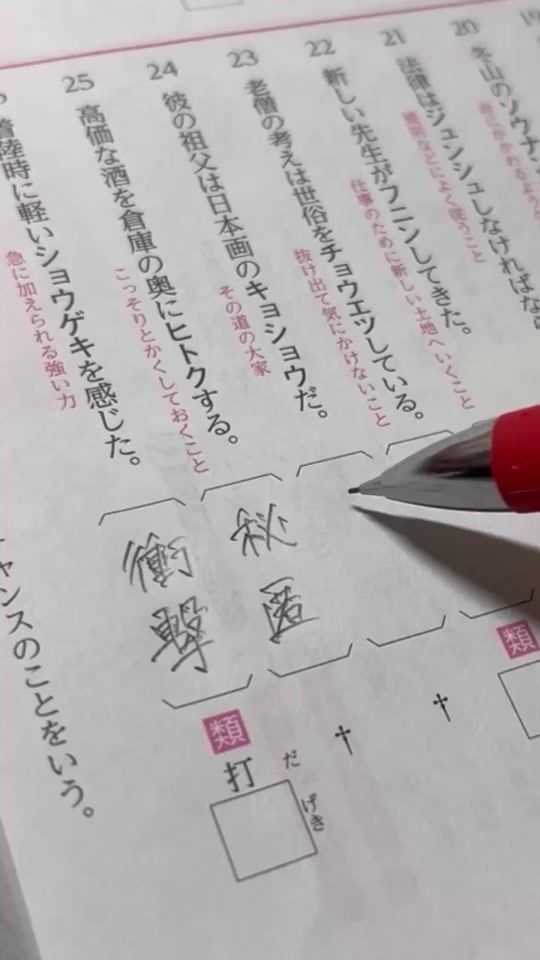 20
冬山の
21
法律はジュンシュしなければな
規則などによく従うこと
22
新しい先生がフニンしてきた。
仕事のために新しい土地へいくこと
23
老僧の考えは世俗をチョウエツしている。
抜け出て気にかけないこと
24
彼の祖父は日本画のキョショウだ。
その道の大家
25
高価な酒を倉庫の奥にヒトクする。
こっそりとかくしておくこと
着陸時に軽いショウゲキを感じた。
急に加えられる強い力
秘匿
衝撃
類
類
打
だ
げき
†
†
ャンスのことをいう。